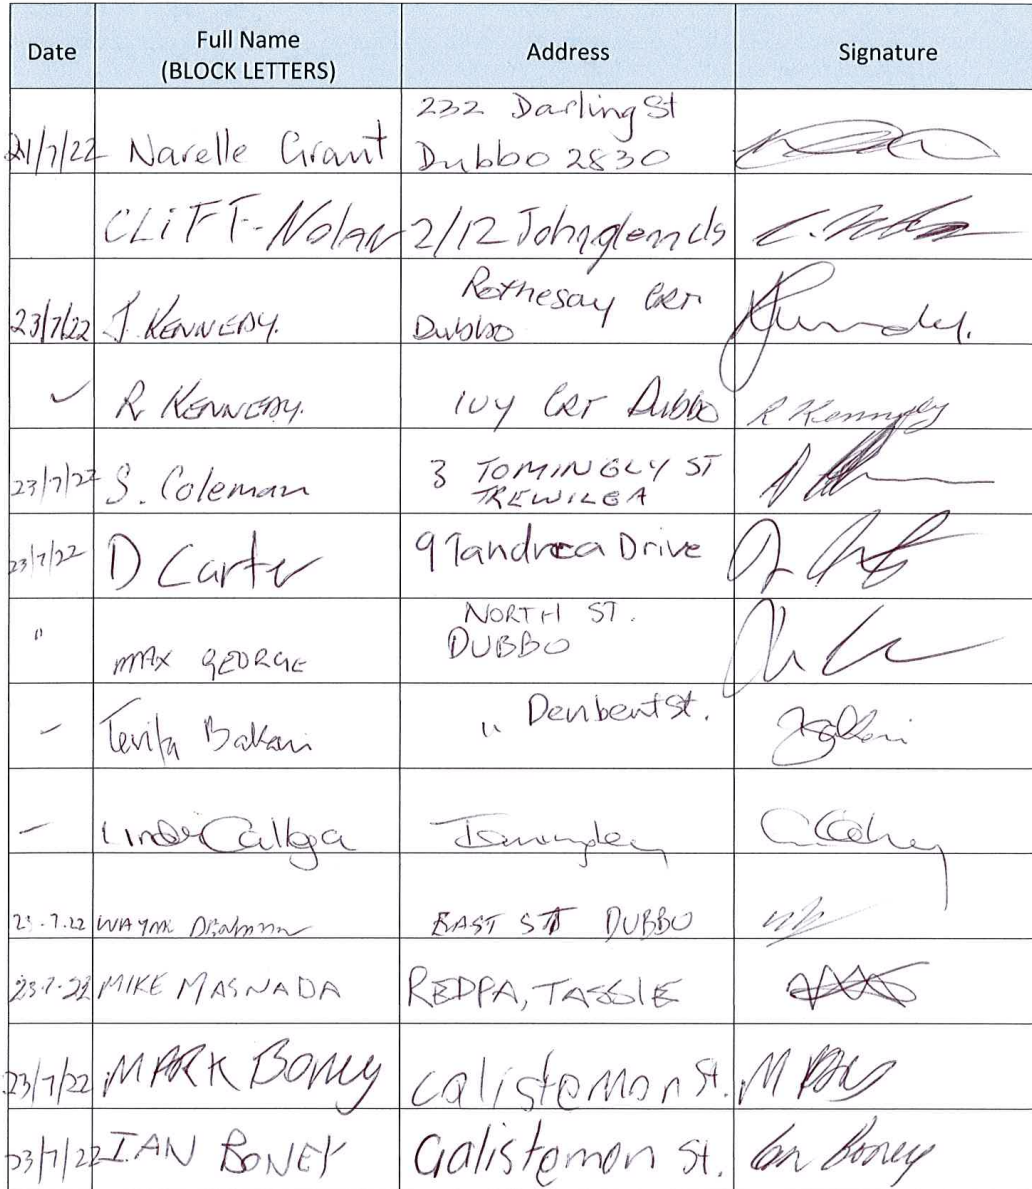 Date Full Name Address Signature
(BLOCK LETTERS)
21/7/22 Narelle Grant 232 Darling St
Dubbo 2830
CLIFF-Nolan 2/12 Johnglenn cls C. Nolan
23/7/22 J. KENNEDY. Rothesay CRT
Dubbo
R KENNEDY. IVY CRT Dubbo R Kennedy
23/7/22 S. Coleman 3 TOMINGLY ST
TREWILGA
23/7/22 D Carter 9 Tandrea Drive
" MAX GEORGE NORTH ST.
DUBBO
Tevita Bakani " Denbent St.
Linda
23.7.22 WAYNE EAST ST DUBBO
23.7.22 MIKE MASNADA REDPA, TASSIE
23/7/22 MARK BONEY Calistemon St. M
23/7/22 IAN BONEY Calistemon St. Ian Boney